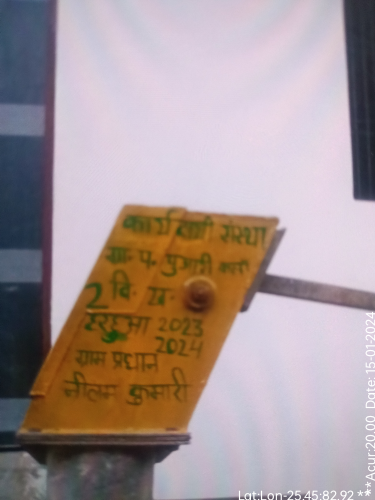 कार्यदायी संस्था
ग्रा. प. पुआरी कला
2 वि. ख.
हरहुआ 2023
2024
ग्राम प्रधान
नीलम कुमारी
Lat:Lon-25.45:82.92 ***Acur:20.00 Date:15-01-2024